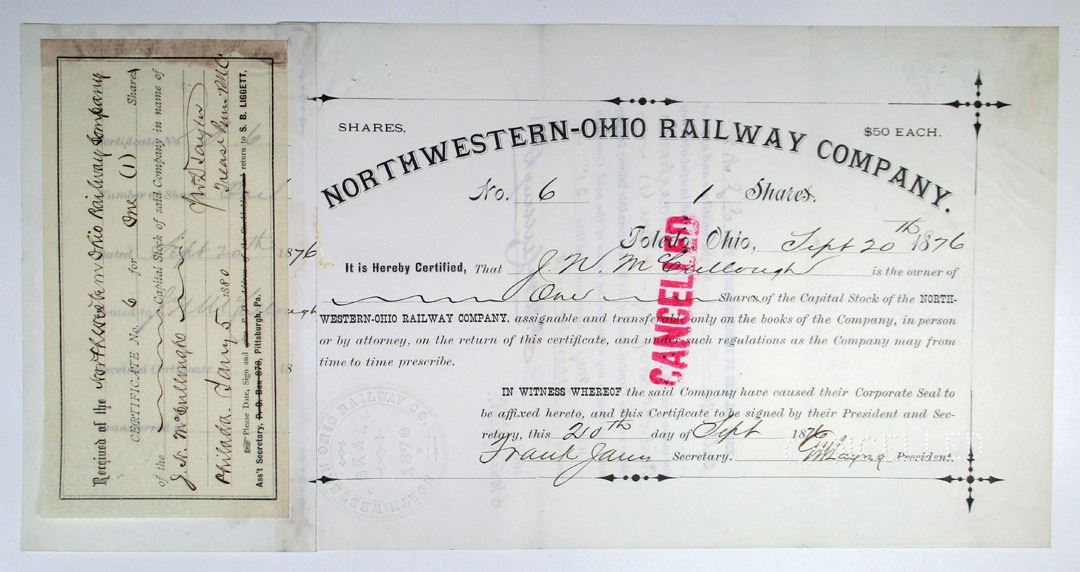 Received of the Northwestern Ohio Railway Company
CERTIFICATE No. 6 for One (1) Shares
of the Capital Stock of said Company in name of
J. N. McCullough
Philada. Jany 1880
Please Date, Sign and return to S. B. LIGGETT,
Ass't Secretary, P. O. Box 878, Pittsburgh, Pa.
Sept 20th 1876
SHARES.
$50 EACH.
NORTHWESTERN-OHIO RAILWAY COMPANY.
No. 6 1 Shares.
Toledo, Ohio, Sept 20th 1876
It is Hereby Certified, That J. N. McCullough is the owner of
One Shares of the Capital Stock of the NORTH-
WESTERN-OHIO RAILWAY COMPANY, assignable and transferable only on the books of the Company, in person
or by attorney, on the return of this certificate, and under such regulations as the Company may from
time to time prescribe.
CANCELLED
IN WITNESS WHEREOF the said Company have caused their Corporate Seal to
be affixed hereto, and this Certificate to be signed by their President and Sec-
retary, this 20th day of Sept 1876
Frank Janes Secretary. President.